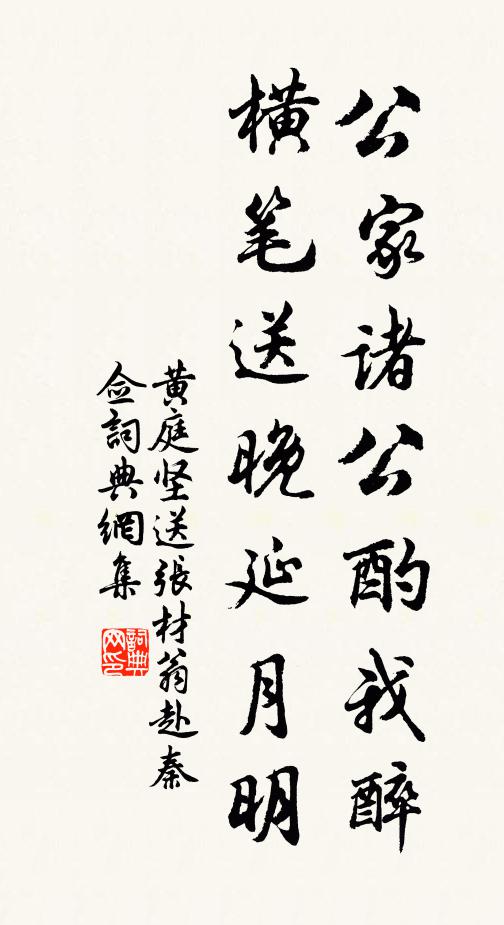 公家诸公酌我醉
横笔送晚延月明
黄庭坚送張材翁赴秦
佥詞典網集
詞典网印